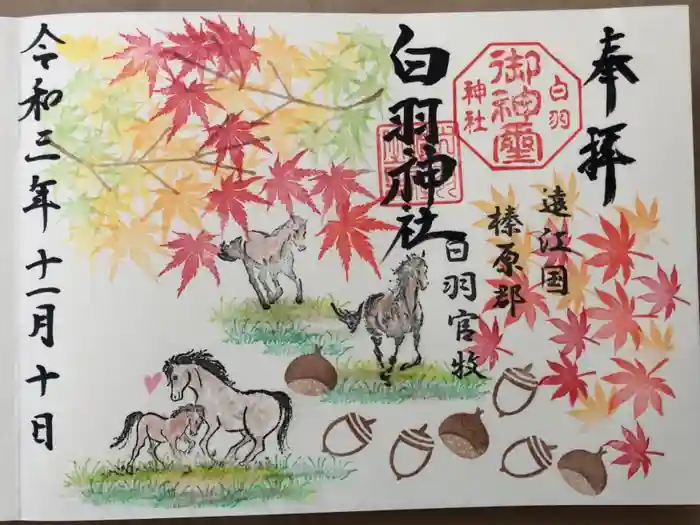 奉拝
御神璽
白羽
神社
遠江国
榛原郡
白羽神社
白羽官牧
令和三年十一月十日